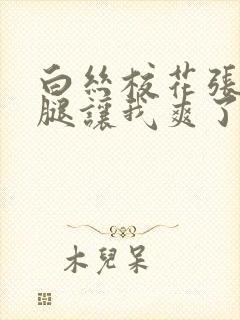 白丝校花張
腿讓我爽了
木兒呆